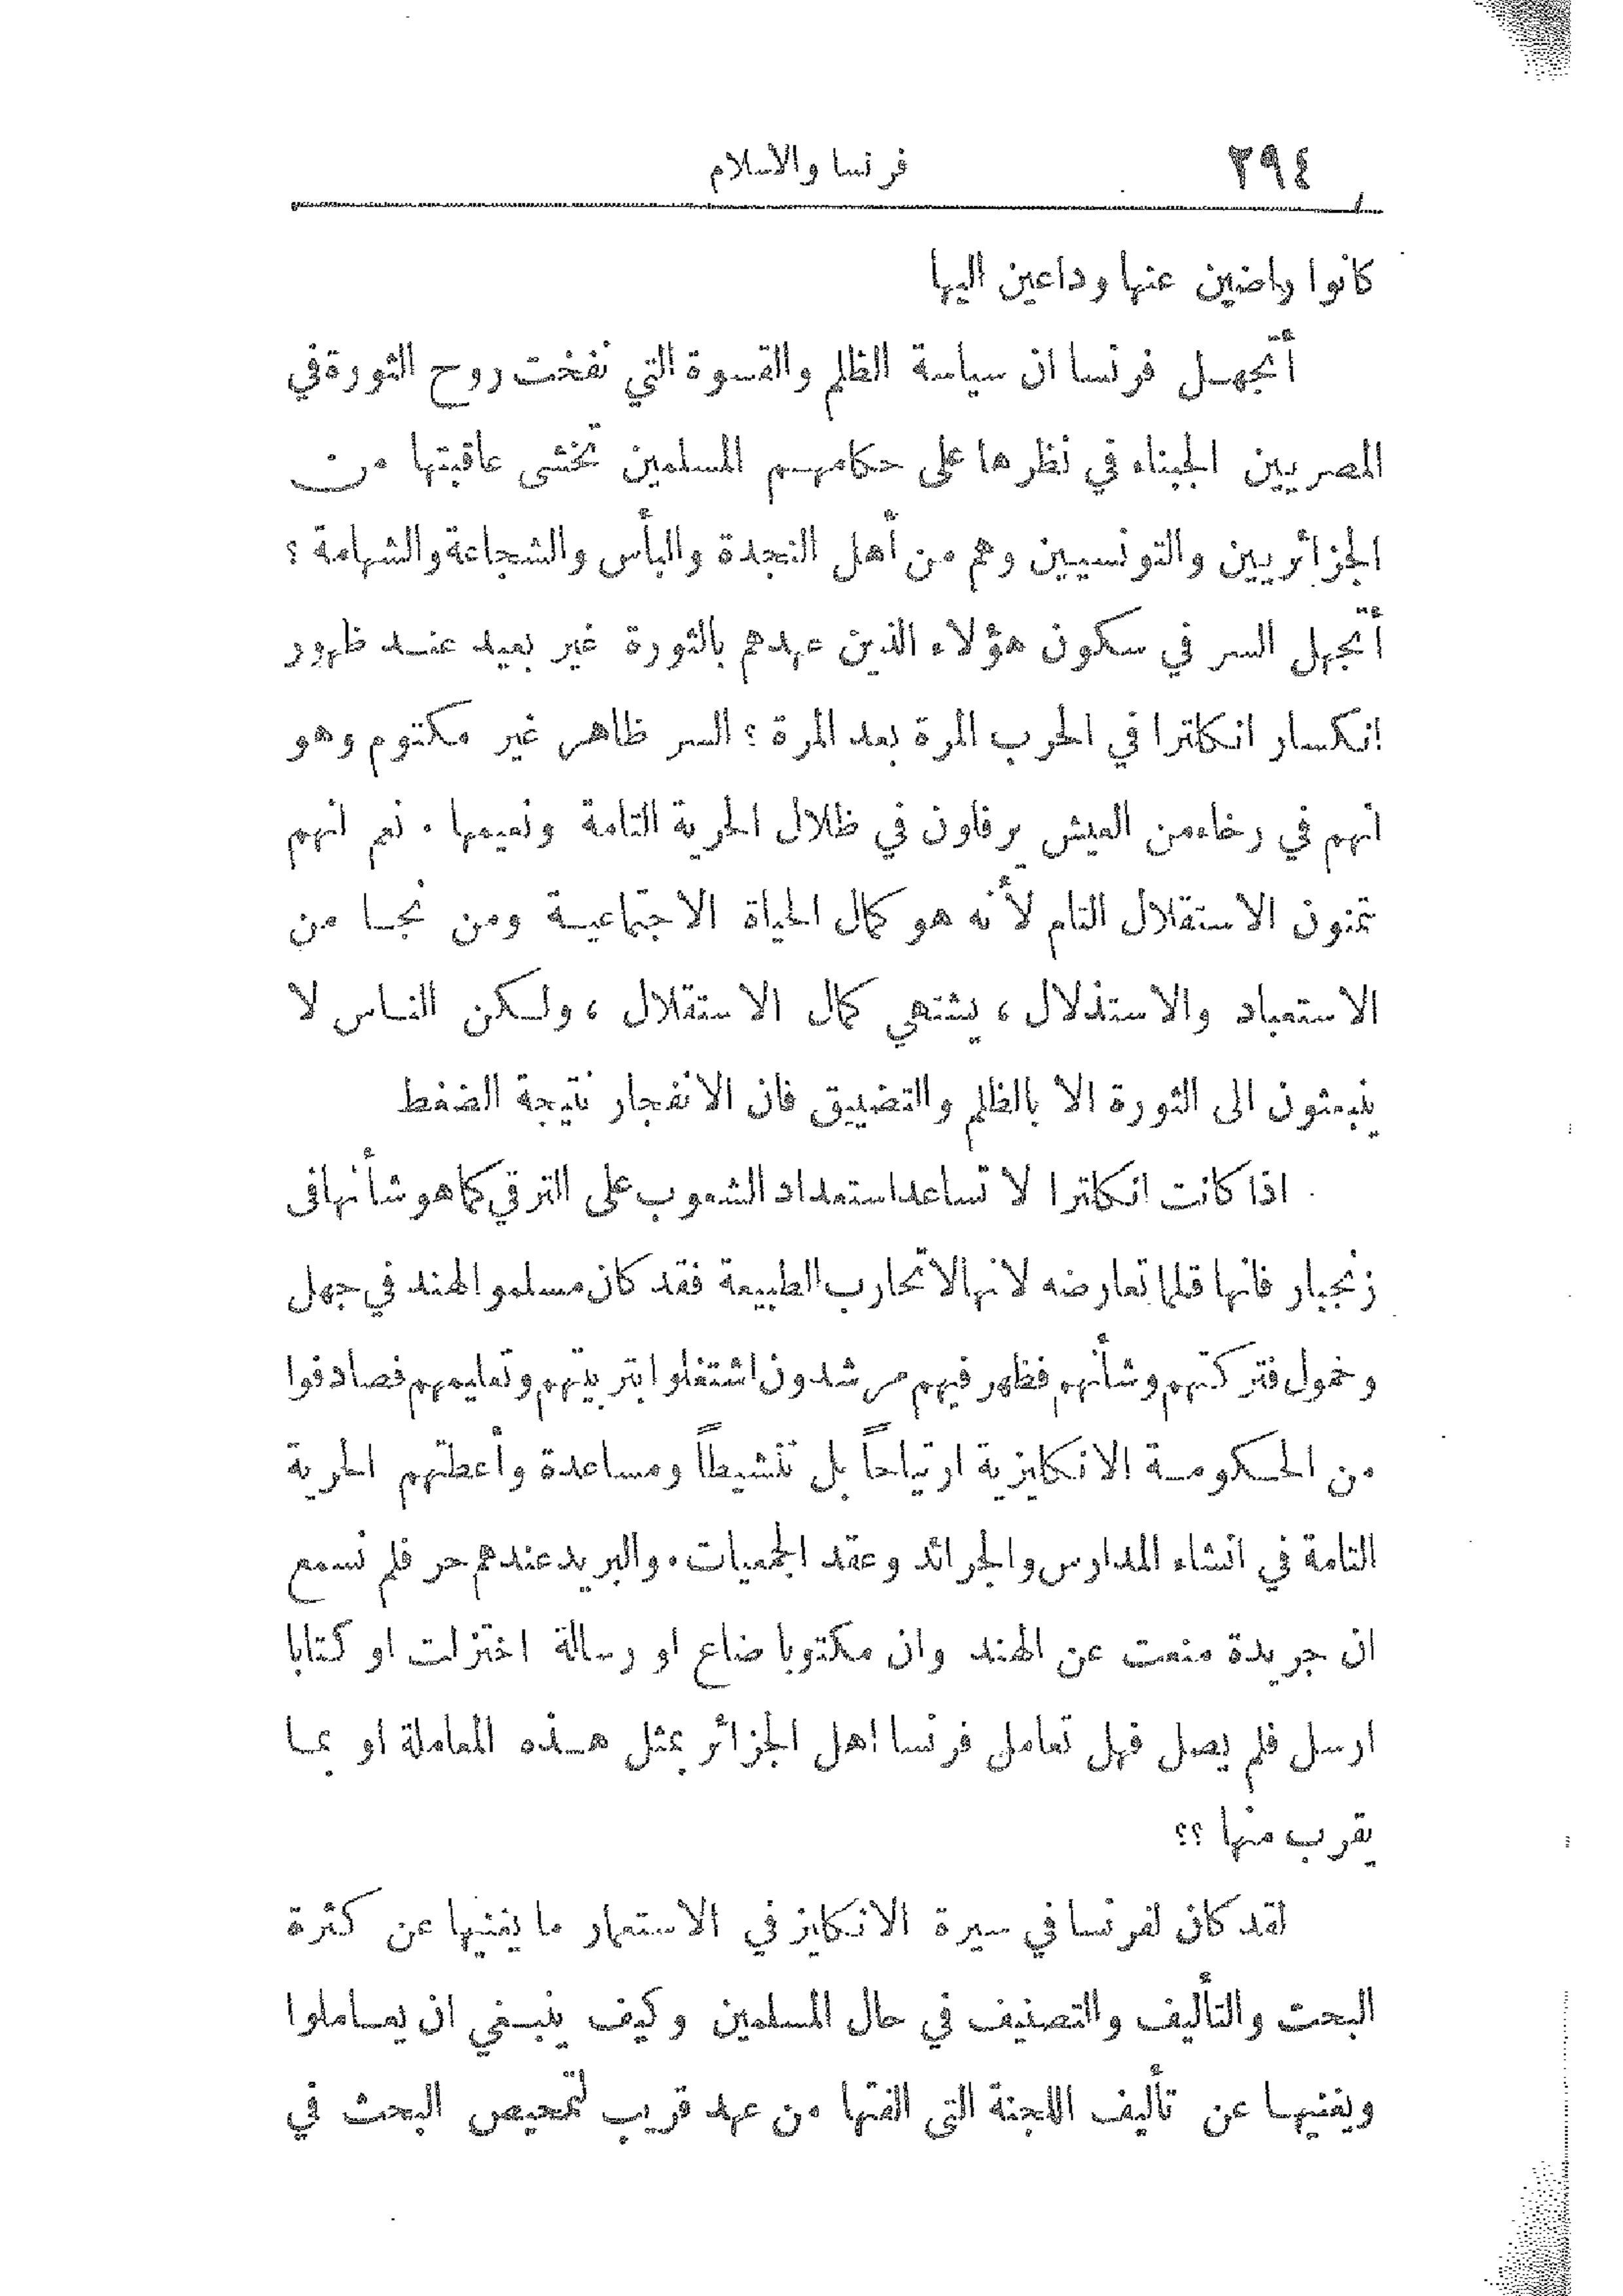 ٢٩٤ فرنسا والاسلام
كانوا راضين عنها وداعين اليها
أتجهل فرنسا ان سياسة الظلم والقسوة التي نفخت روح الثورة في
المصريين الجبناء في نظرها على حكامهم المسلمين تخشى عاقبتها من
الجزائريين والتونسيين وهم من أهل النجدة والبأس والشجاعة والشهامة ؟
أتجهل السر في سكون هؤلاء الذين عهدهم بالثورة غير بعيد عند ظهور
انكسار انكلترا في الحرب المرة بعد المرة ؟ السر ظاهر غير مكتوم وهو
انهم في رخاء من العيش يرفلون في ظلال الحرية التامة ونعيمها . نعم انهم
يتمنون الاستقلال التام لأنه هو كمال الحياة الاجتماعية ومن نجا من
الاستعباد والاستذلال ، يشتهي كمال الاستقلال ، ولكن الناس لا
ينبعثون الى الثورة الا بالظلم والتضييق فان الانفجار نتيجة الضغط
اذا كانت انكلترا لا تساعد استعداد الشعوب على الترقي كما هو شأنها فى
زنجبار فانها قلما تعارضه لانها لا تحارب الطبيعة فقد كان مسلمو الهند في جهل
وخمول فتركتهم وشأنهم فظهر فيهم مرشدون اشتغلوا بتربيتهم وتعليمهم فصادفوا
من الحكومة الانكليزية ارتياحاً بل تنشيطاً ومساعدة وأعطتهم الحرية
التامة في انشاء المدارس والجرائد وعقد الجمعيات . والبريد عندهم حر فلم نسمع
ان جريدة منعت عن الهند وان مكتوبا ضاع او رسالة اختزلت او كتابا
ارسل فلم يصل فهل تعامل فرنسا اهل الجزائر بمثل هذه المعاملة او بما
يقرب منها ؟؟
لقد كان لفرنسا في سيرة الانكليز في الاستعمار ما يغنيها عن كثرة
البحث والتأليف والتصنيف في حال المسلمين وكيف ينبغي ان يعاملوا
ويغنيها عن تأليف اللجنة التى الفتها من عهد قريب لتمحيص البحث في